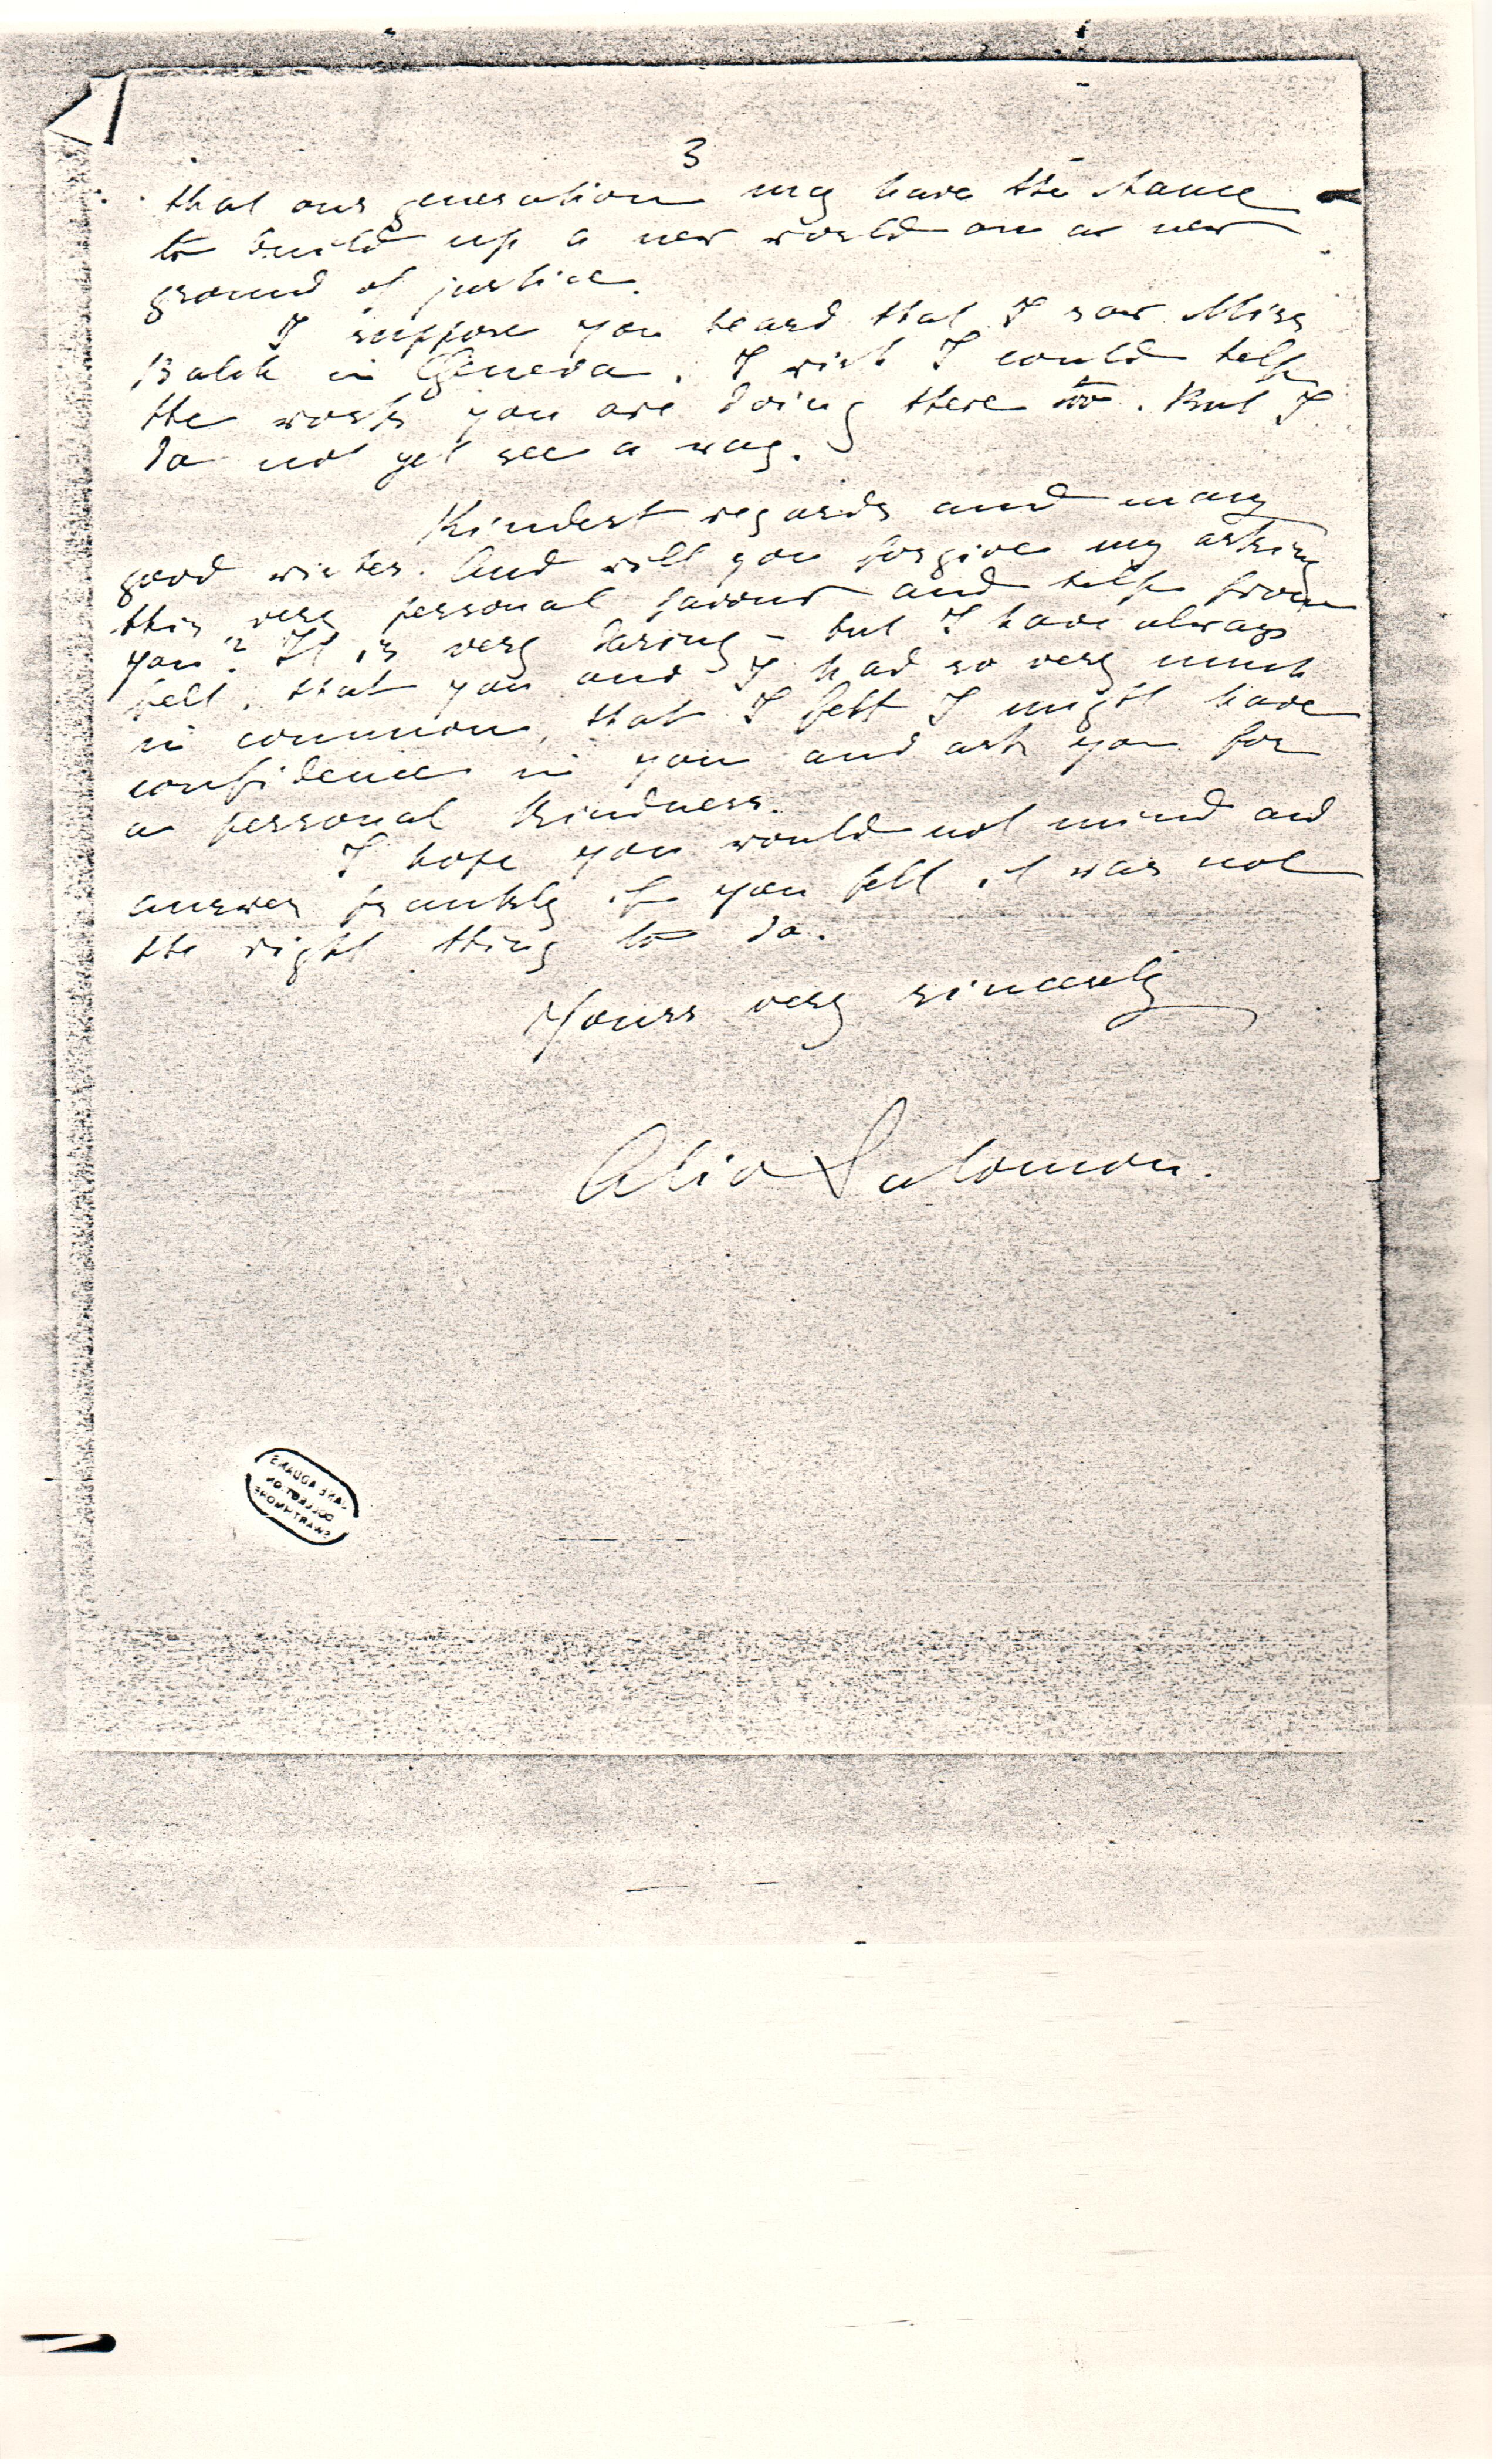 3
that our generation may have the chance
to build up a new world on a new
ground of justice.
I suppose you heard that I saw Miss
Balch in Geneva. I wish I could help
the work you are doing there too. But I
do not yet see a way.
Kindest regards and many
good wishes. And will you forgive my asking
this very personal favour and help from
you? It is very daring – but I have always
felt, that you and I had so very much
in common, that I felt I might have
confidence in you and ask you for
a personal kindness.
I hope you would not mind and
answer frankly if you felt it was not
the right thing to do.
Yours very sincerely
Alice Salomon.
JANE ADDAMS
COLLECTION
SWARTHMORE